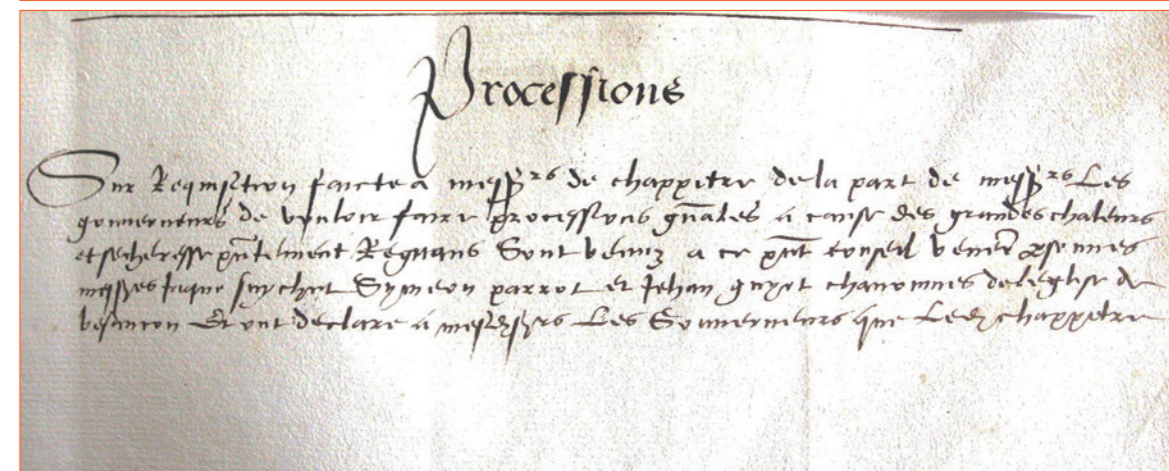 Processions
Sur Requisition faicte a messrs de chappitre de la part de messrs Les
gouverneurs de vouloir faire processions gnales a cause des grandes chaleurs
et secheresse pntement Regnans Sont venuz a ce pnt conseil
messres Symeon parrot et Jehan guyot chanoinnes de leglise de
besancon Et ont declare a mesdsrs Les Gouverneurs que Ledt chappitre